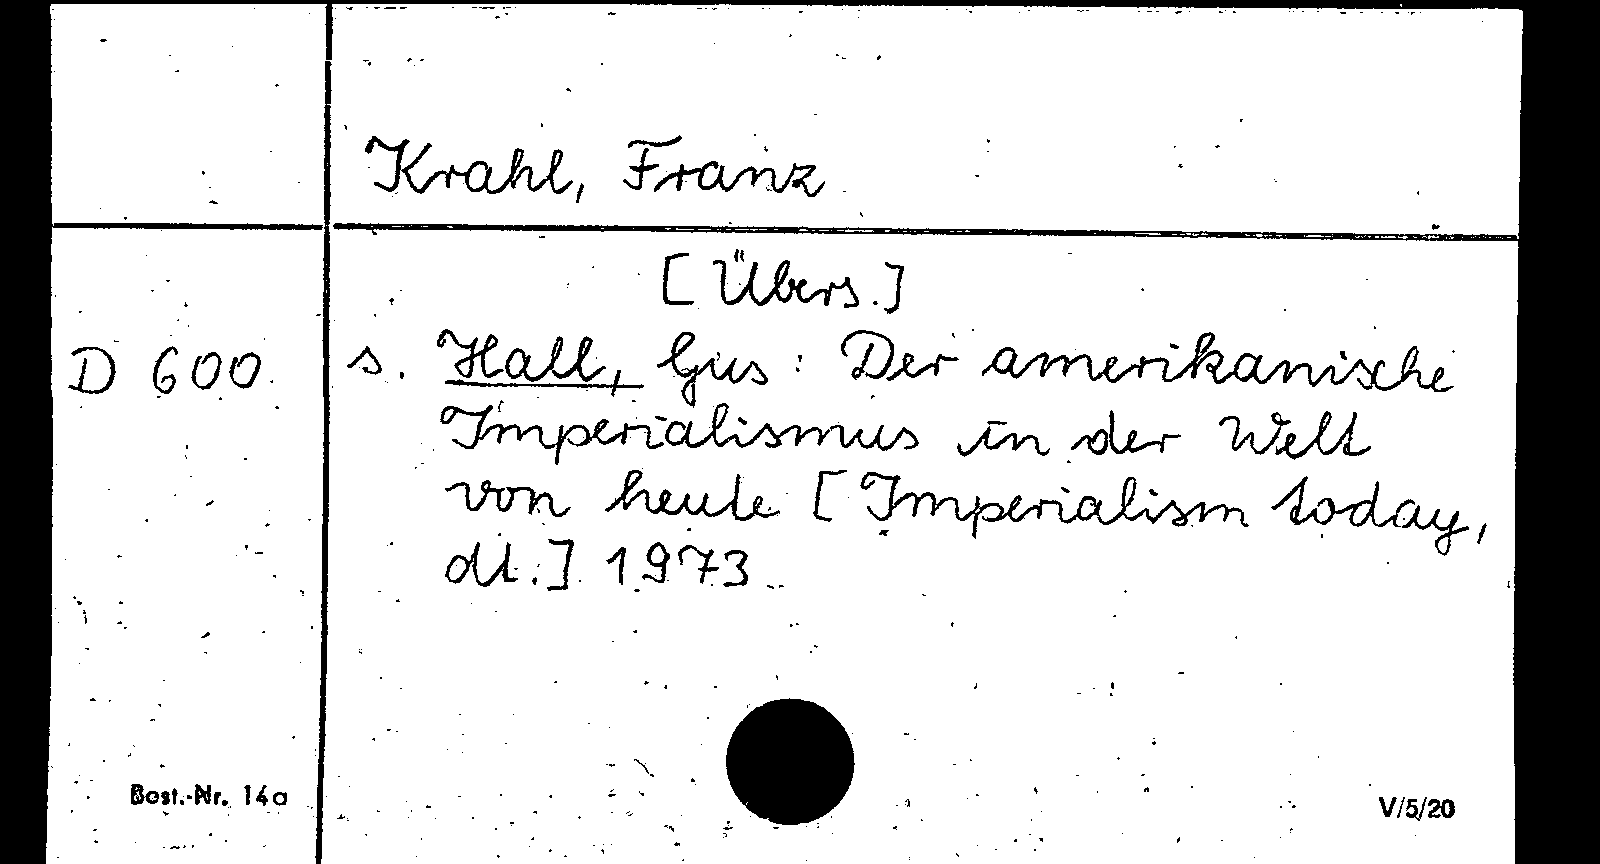 Krahl, Franz
[Übers.]
D 600 s. Hall, Gus: Der amerikanische
Imperialismus in der Welt
von heute [Imperialism today,
dt.] 1973
Best.-Nr. 14a
V/5/20